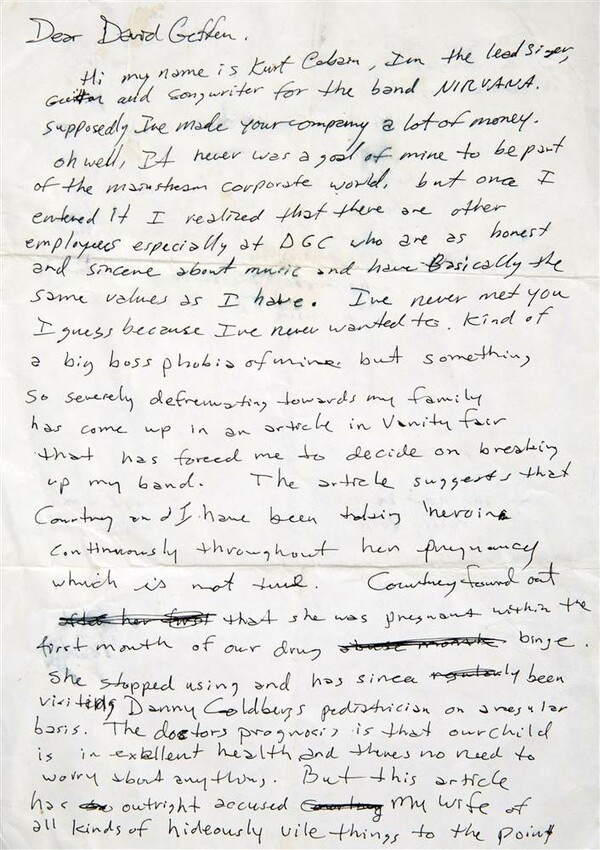 Dear David Geffen.
Hi my name is Kurt Cobain, Im the lead singer,
and songwriter for the band NIRVANA.
supposedly Ive made your company a lot of money.
oh well, It never was a goal of mine to be part
of the mainstream corporate world, but once I
entered it I realized that there are other
employees especially at DGC who are as honest
and sincere about music and have Basically the
same values as I have. Ive never met you
I guess because Ive never wanted to. Kind of
a big boss phobia of mine but something
So severely defremating towards my family
has come up in an article in Vanity fair
that has forced me to decide on breaking
up my band. The article suggests that
Courtney and I have been taking heroine
continuously throughout her pregnancy
which is not true. Courtney found out
after her first that she was pregnant within the
first month of our drug abuse binge.
She stopped using and has since regularly been
visiting Danny Goldbergs pediatrician on a regular
basis. The doctors prognosis is that our child
is in exellent health and theres no need to
worry about anything. But this article
has outright accused Courtney My wife of
all kinds of hideously vile things to the point